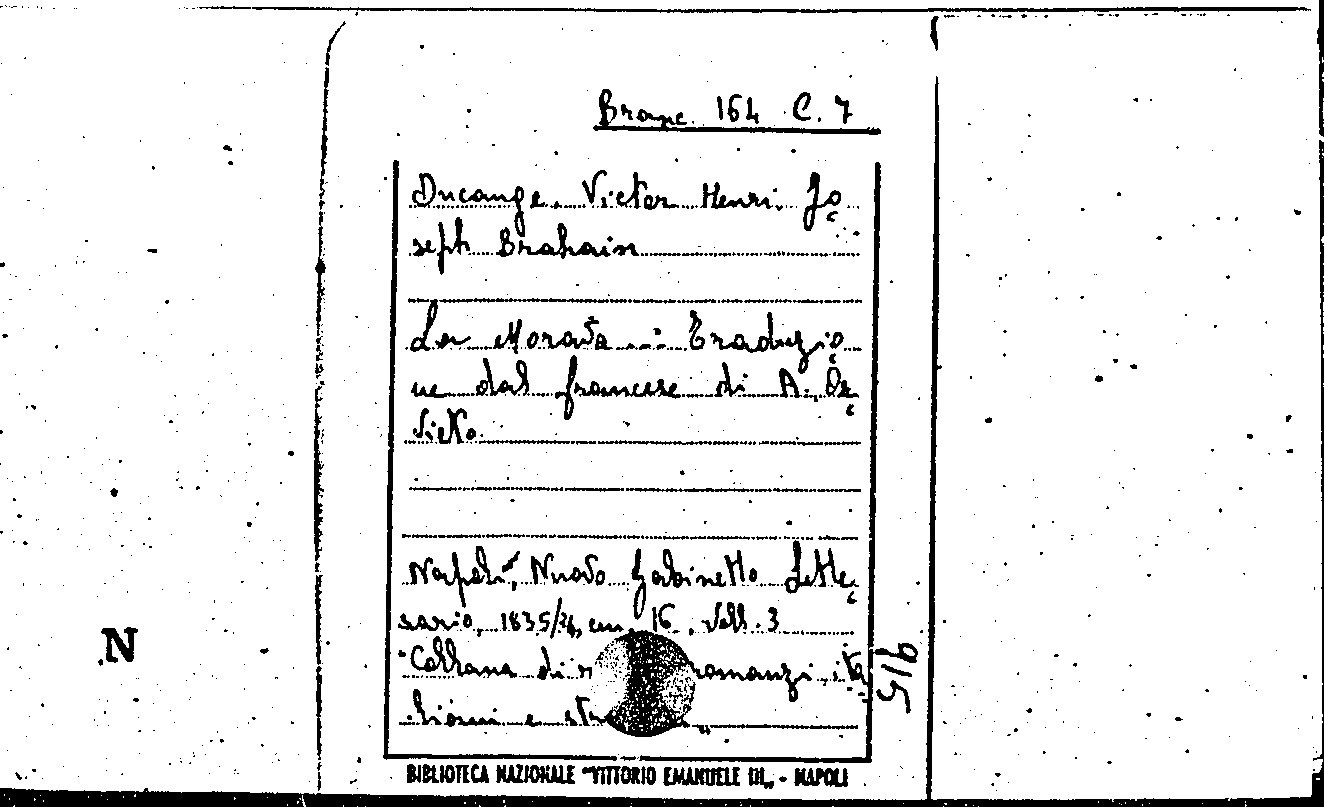 Branc. 164 C. 7
Ducange, Victor Henri Jo
seph Brahain
La Morava ... Traduzio
ne dal francese di A. Or
vieto.
Napoli, Nuovo Gabinetto Lette
rario, 1835/36, cm. 16, Voll. 3
Collana di romanzi ita
liani e str
915
N
BIBLIOTECA NAZIONALE "VITTORIO EMANUELE III„ - NAPOLI